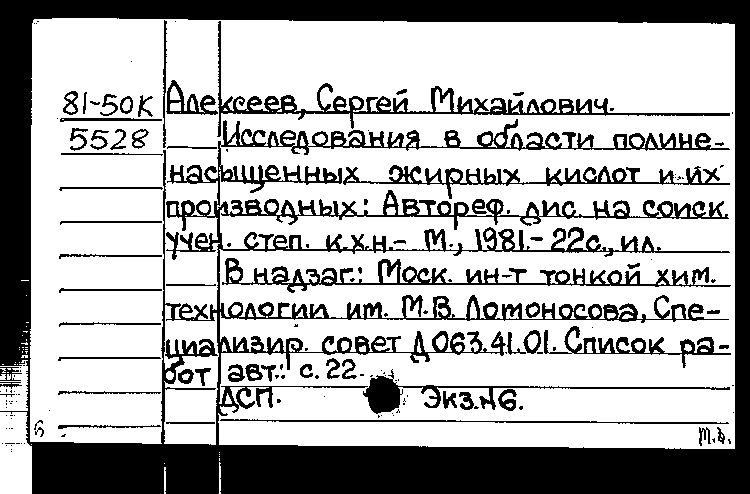 81-50К Алексеев, Сергей Михайлович.
5528 Исследования в области полине-
насыщенных жирных кислот и их
производных: Автореф. дис. на соиск.
учен. степ. к.х.н.- М., 1981.- 22с., ил.
В надзаг.: Моск. ин-т тонкой хим.
технологии им. М.В. Ломоносова, Спе-
циализир. совет Д 063.41.01. Список ра-
бот авт.: с. 22.
ДСП. Экз.№6.
б